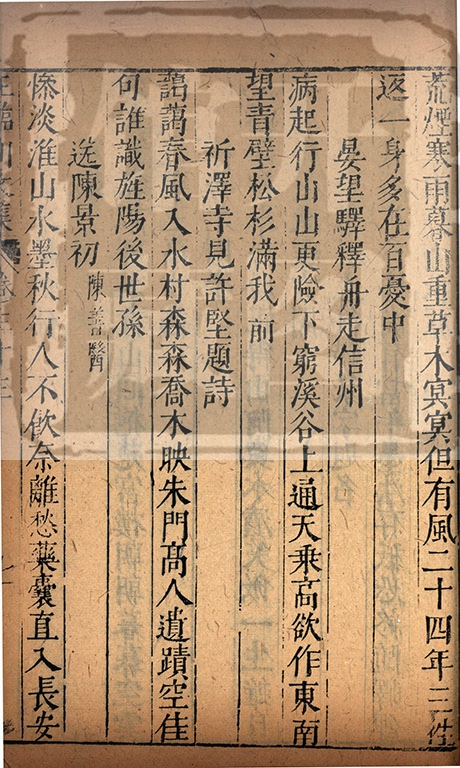 荒煙寒雨暮山重草木冥冥但有風二十四年三徃
返一身多在百憂中
晏望驛釋舟走信州
病起行山山更險下窮溪谷上通天乗高欲作東南
望青壁松杉滿我前
祈澤寺見許堅題詩
藹藹春風入水村森森喬木映朱門髙人遺蹟空佳
句誰識旌陽後世孫
送陳景初 陳善醫
慘淡淮山水墨秋行人不飲奈離愁藥囊直入長安
王臨川文集